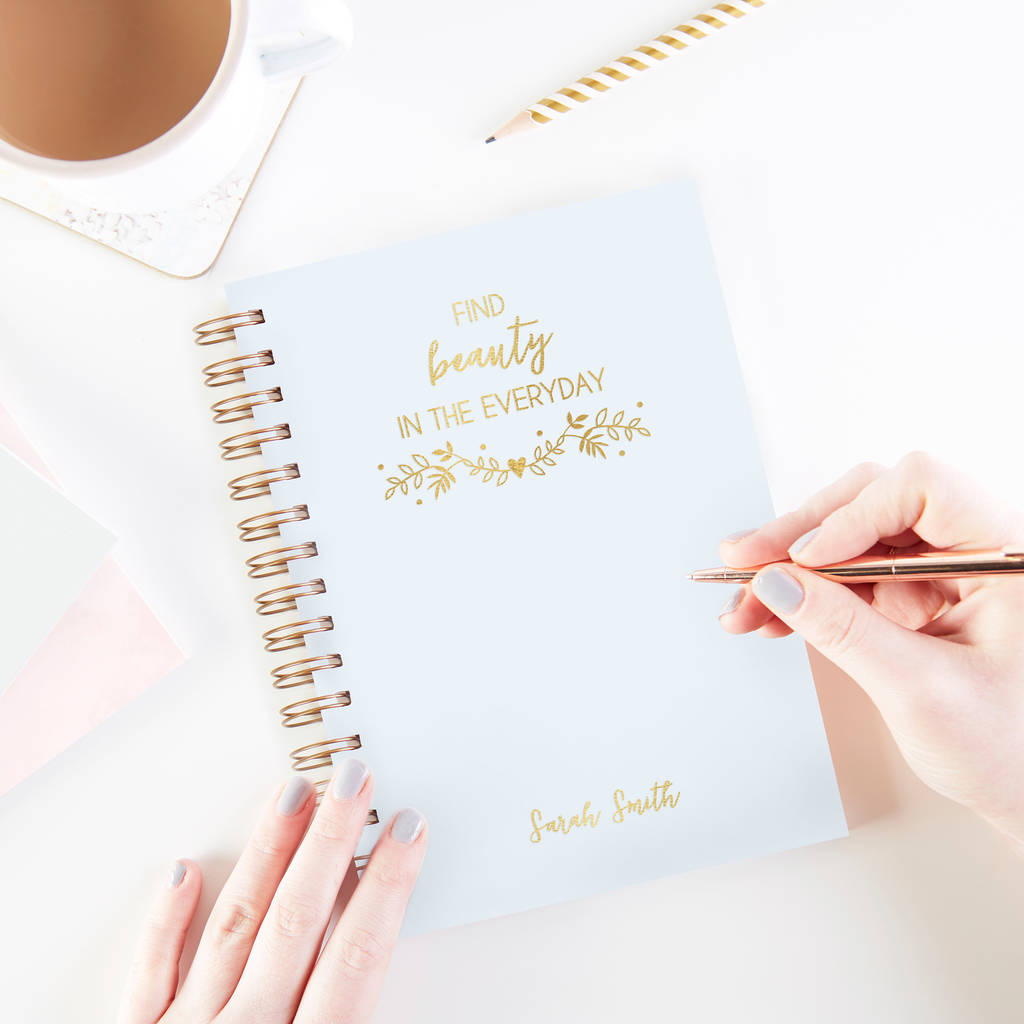 FIND
beauty
IN THE EVERYDAY
Sarah Smith